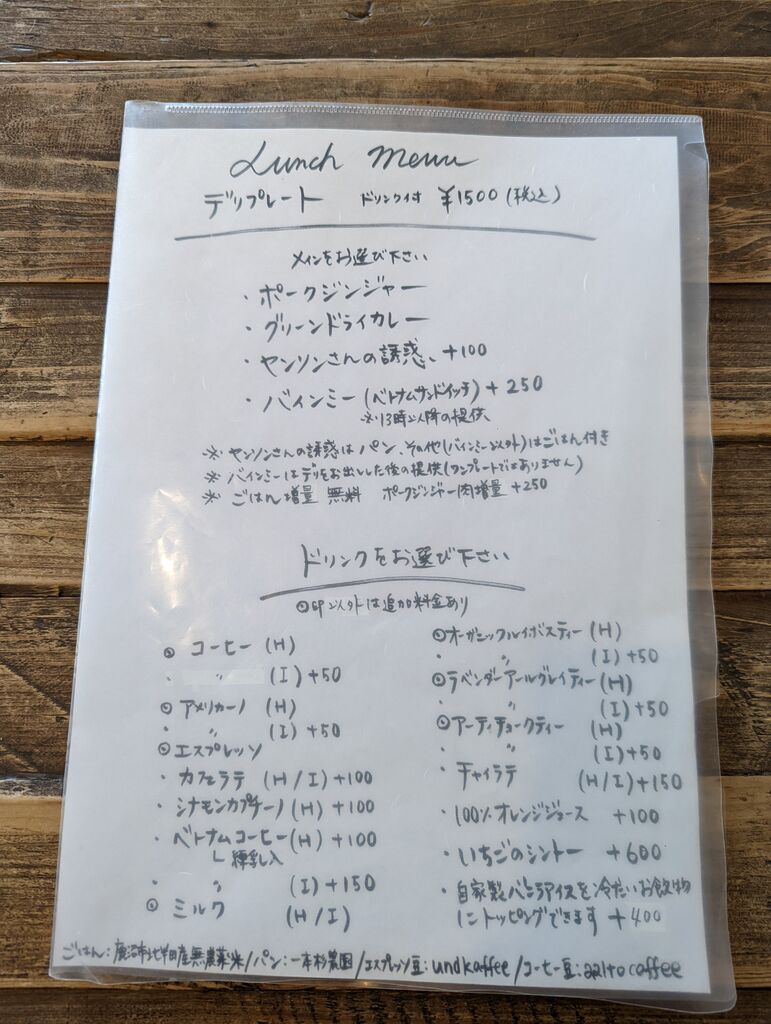 Lunch menu
デリプレート ドリンク付 ¥1500(税込)
メインをお選び下さい
・ポークジンジャー
・グリーンドライカレー
・ヤンソンさんの誘惑 +100
・バインミー(ベトナムサンドイッチ)+250
※13時以降の提供
※ヤンソンさんの誘惑はパン、その他(バインミー以外)はごはん付き
※バインミーはデリをお出しした後の提供(ワンプレートではありません)
※ ごはん増量 無料 ポークジンジャー肉増量 +250
ドリンクをお選び下さい
◎印以外は追加料金あり
◎ コーヒー (H)
・ (I)+50
◎ アメリカーノ (H)
・ 〃 (I)+50
◎エスプレッソ
・カフェラテ (H/I)+100
・シナモンカプチーノ(H)+100
・ベトナムコーヒー(H)+100
└練乳入
・ 〃 (I)+150
◎ ミルク (H/I)
◎オーガニックルイボスティー(H)
・ 〃 (I)+50
◎ラベンダーアールグレイティー(H)
・ 〃 (I)+50
◎アーティチョークティー (H)
〃 (I)+50
・チャイラテ (H/I)+150
・100%オレンジジュース +100
・いちごのシントー +600
・自家製バニラアイスを冷たいお飲物
にトッピングできます +400
ごはん:鹿沼市北半田産無農薬米/パン:一本杉農園/エスプレッソ豆:und kaffee/コーヒー豆:aalto coffee